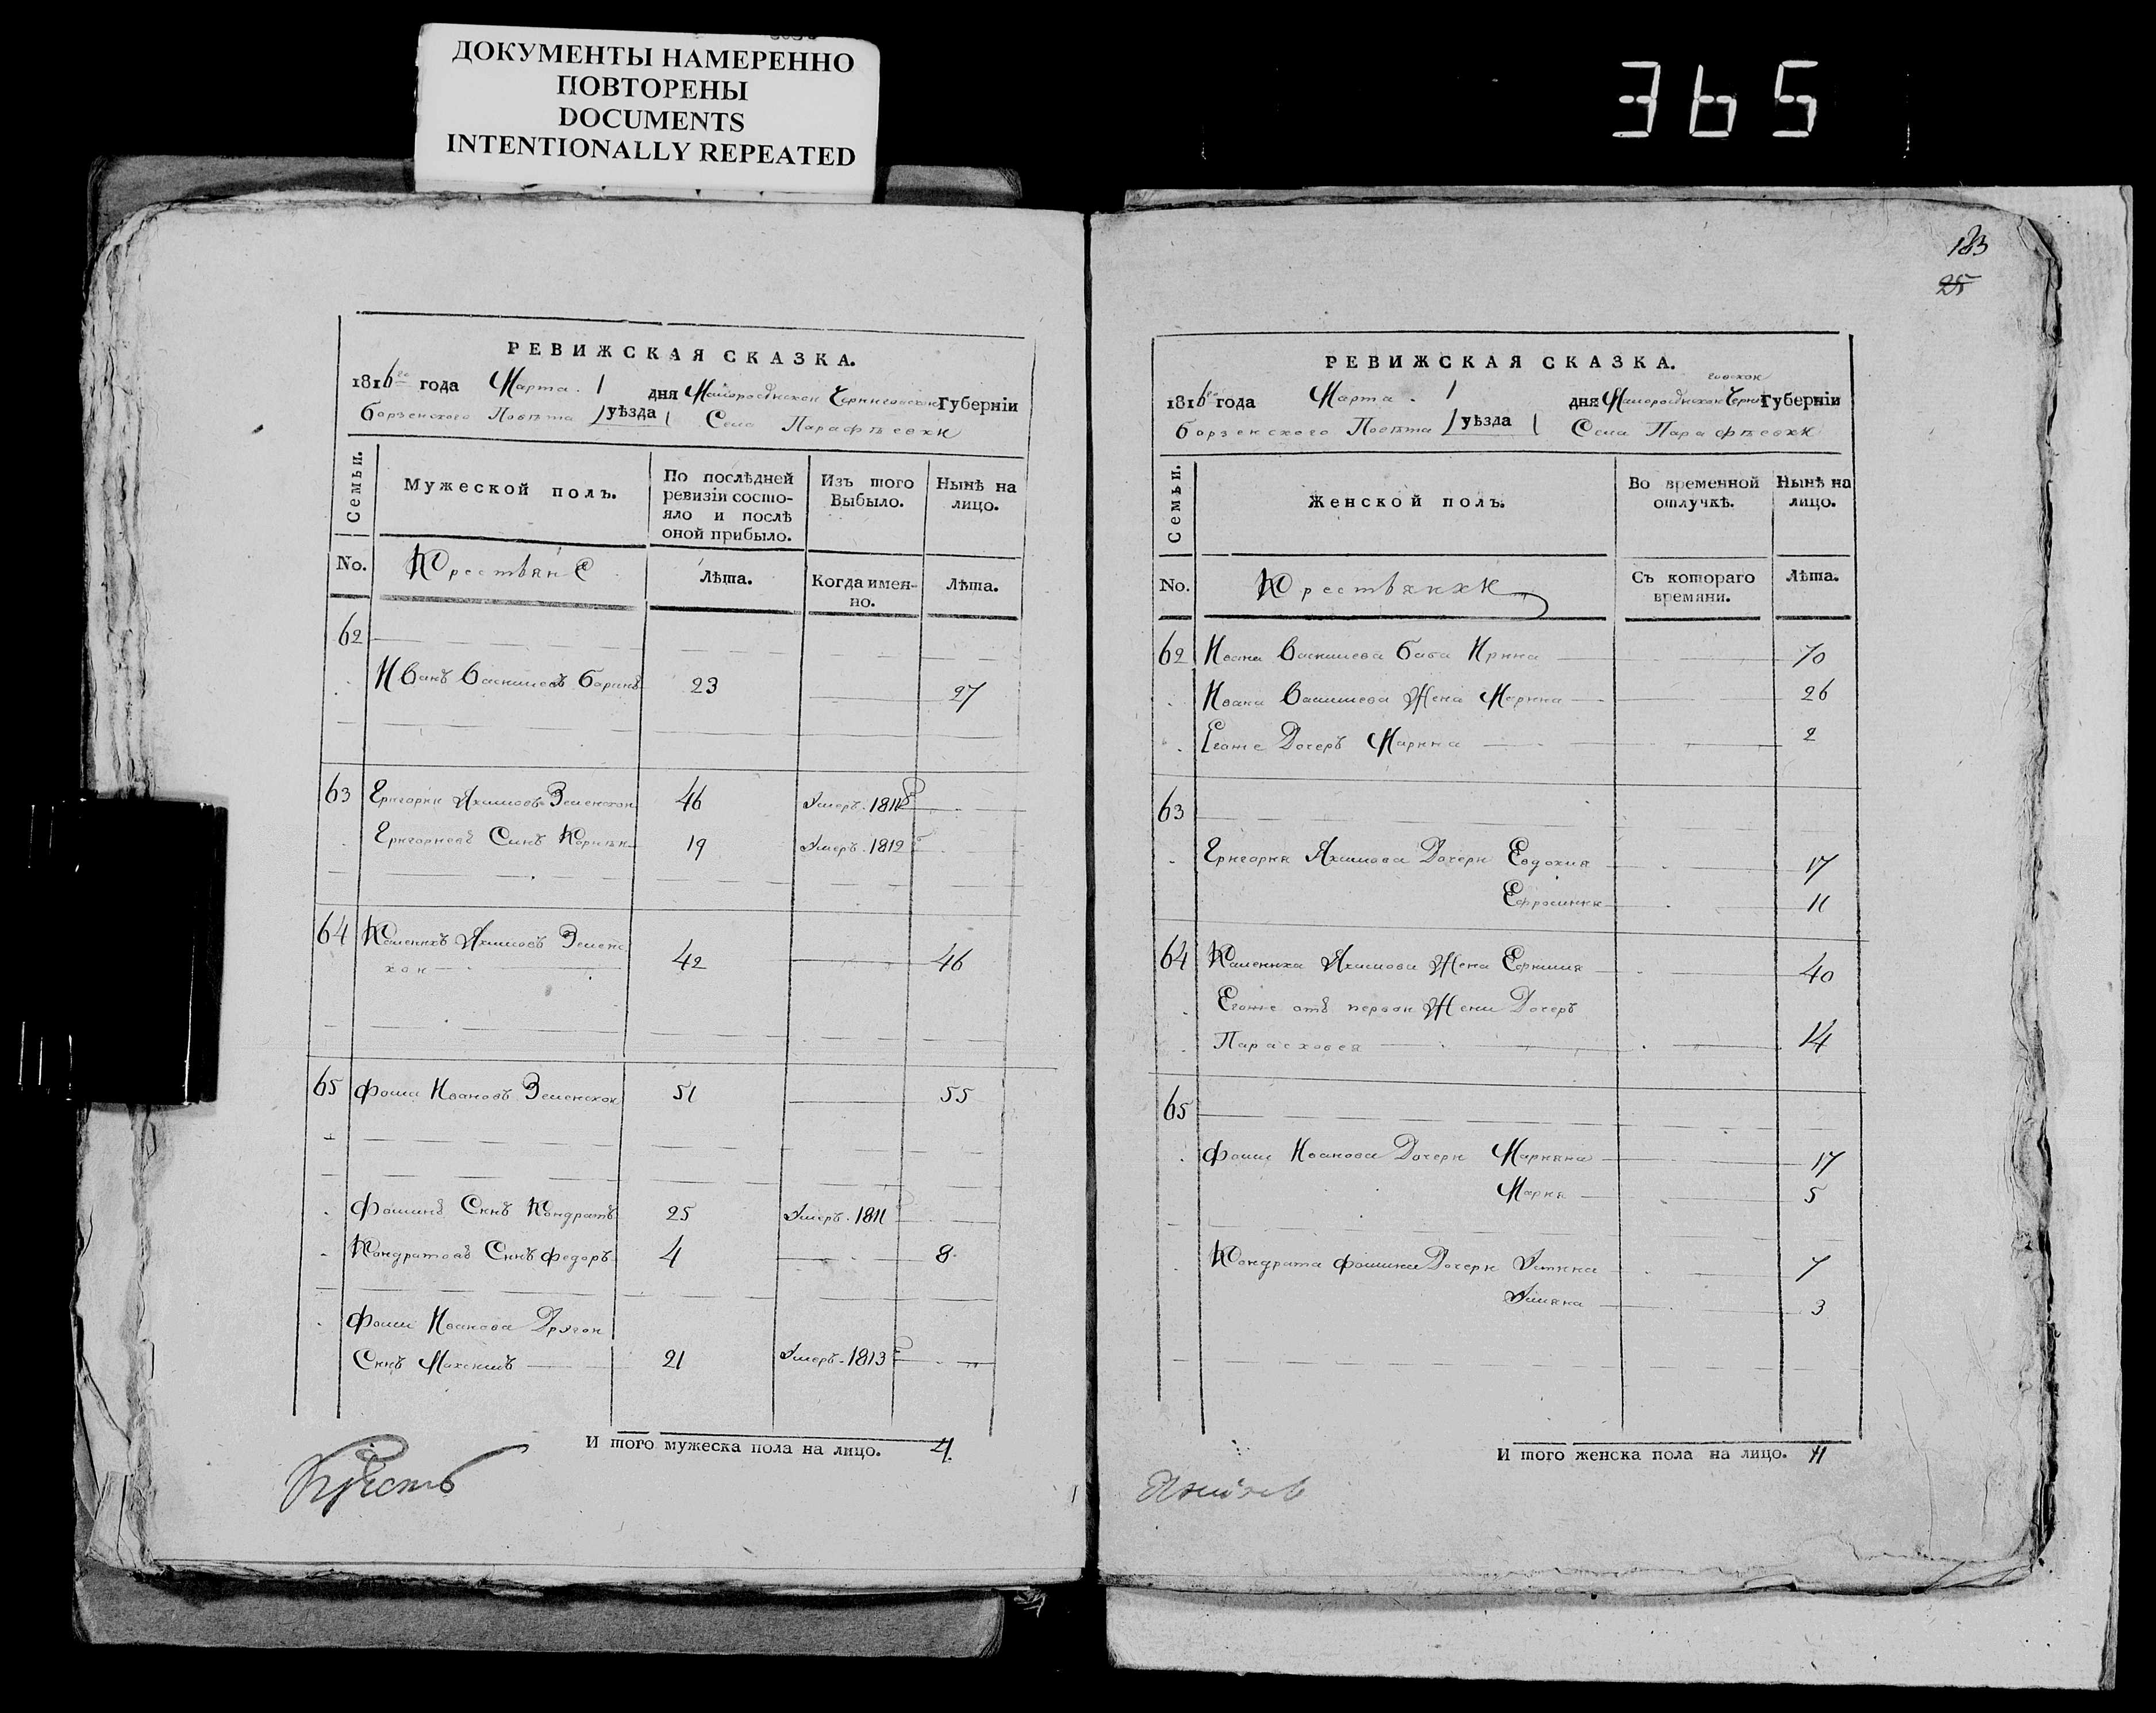 ДОКУМЕНТЫ НАМЕРЕННО
ПОВТОРЕНЫ
DOCUMENTS
INTENTIONALLY REPEATED
365
РЕВИЖСКАЯ СКАЗКА.
1816го года Марта 1 дня Малоросійской Черниговской Губерніи
Борзенского Повѣта уѣзда Села Парафѣевки
Семьи.
Мужеской полъ.
По послѣдней ревизіи состояло и послѣ оной прибыло.
Изъ того Выбыло.
Нынѣ на лицо.
No.
Крестьяне
Лѣта.
Когда именно.
Лѣта.
62
Иванъ Васильевъ 23 27
63 Григорий Якимовъ Зеленской 46 Умеръ 1811
Григориевъ Синъ 19 Умеръ 1812
64 Каленикъ Якимовъ Зеленс
кой 42 46
65 Фома Ивановъ Зеленской 51 55
Фоминъ Синъ Кондратъ 25 Умеръ 1811
Кондратовъ Синъ Федоръ 4 8
Фоми Иванова Другой
Синъ Максимъ 21 Умеръ 1813
И того мужеска пола на лицо. 4
183
25
РЕВИЖСКАЯ СКАЗКА.
говской
1816го года Марта 1 дня Малоросійской Черни Губерніи
Борзенского Повѣта уѣзда Села Парафѣевки
Семьи.
Женской полъ.
Во временной отлучкѣ.
Нынѣ на лицо.
No.
Крестьянки
Съ котораго времяни.
Лѣта.
62 Ивана Васильева Баба Ирина 70
Ивана Васильева Жена Марина 26
Егоже Дочеръ Марина 2
63
Григория Якимова Дочери Евдокия 17
Ефросиния 11
64 Каленика Якимова Жена 40
Егоже отъ первой Жени Дочеръ
Парасковея 14
65
Фоми Иванова Дочери Марияна 17
Мария 5
Кондрата Фомина Дочери Устина 7
Уляна 3
И того женска пола на лицо. 11